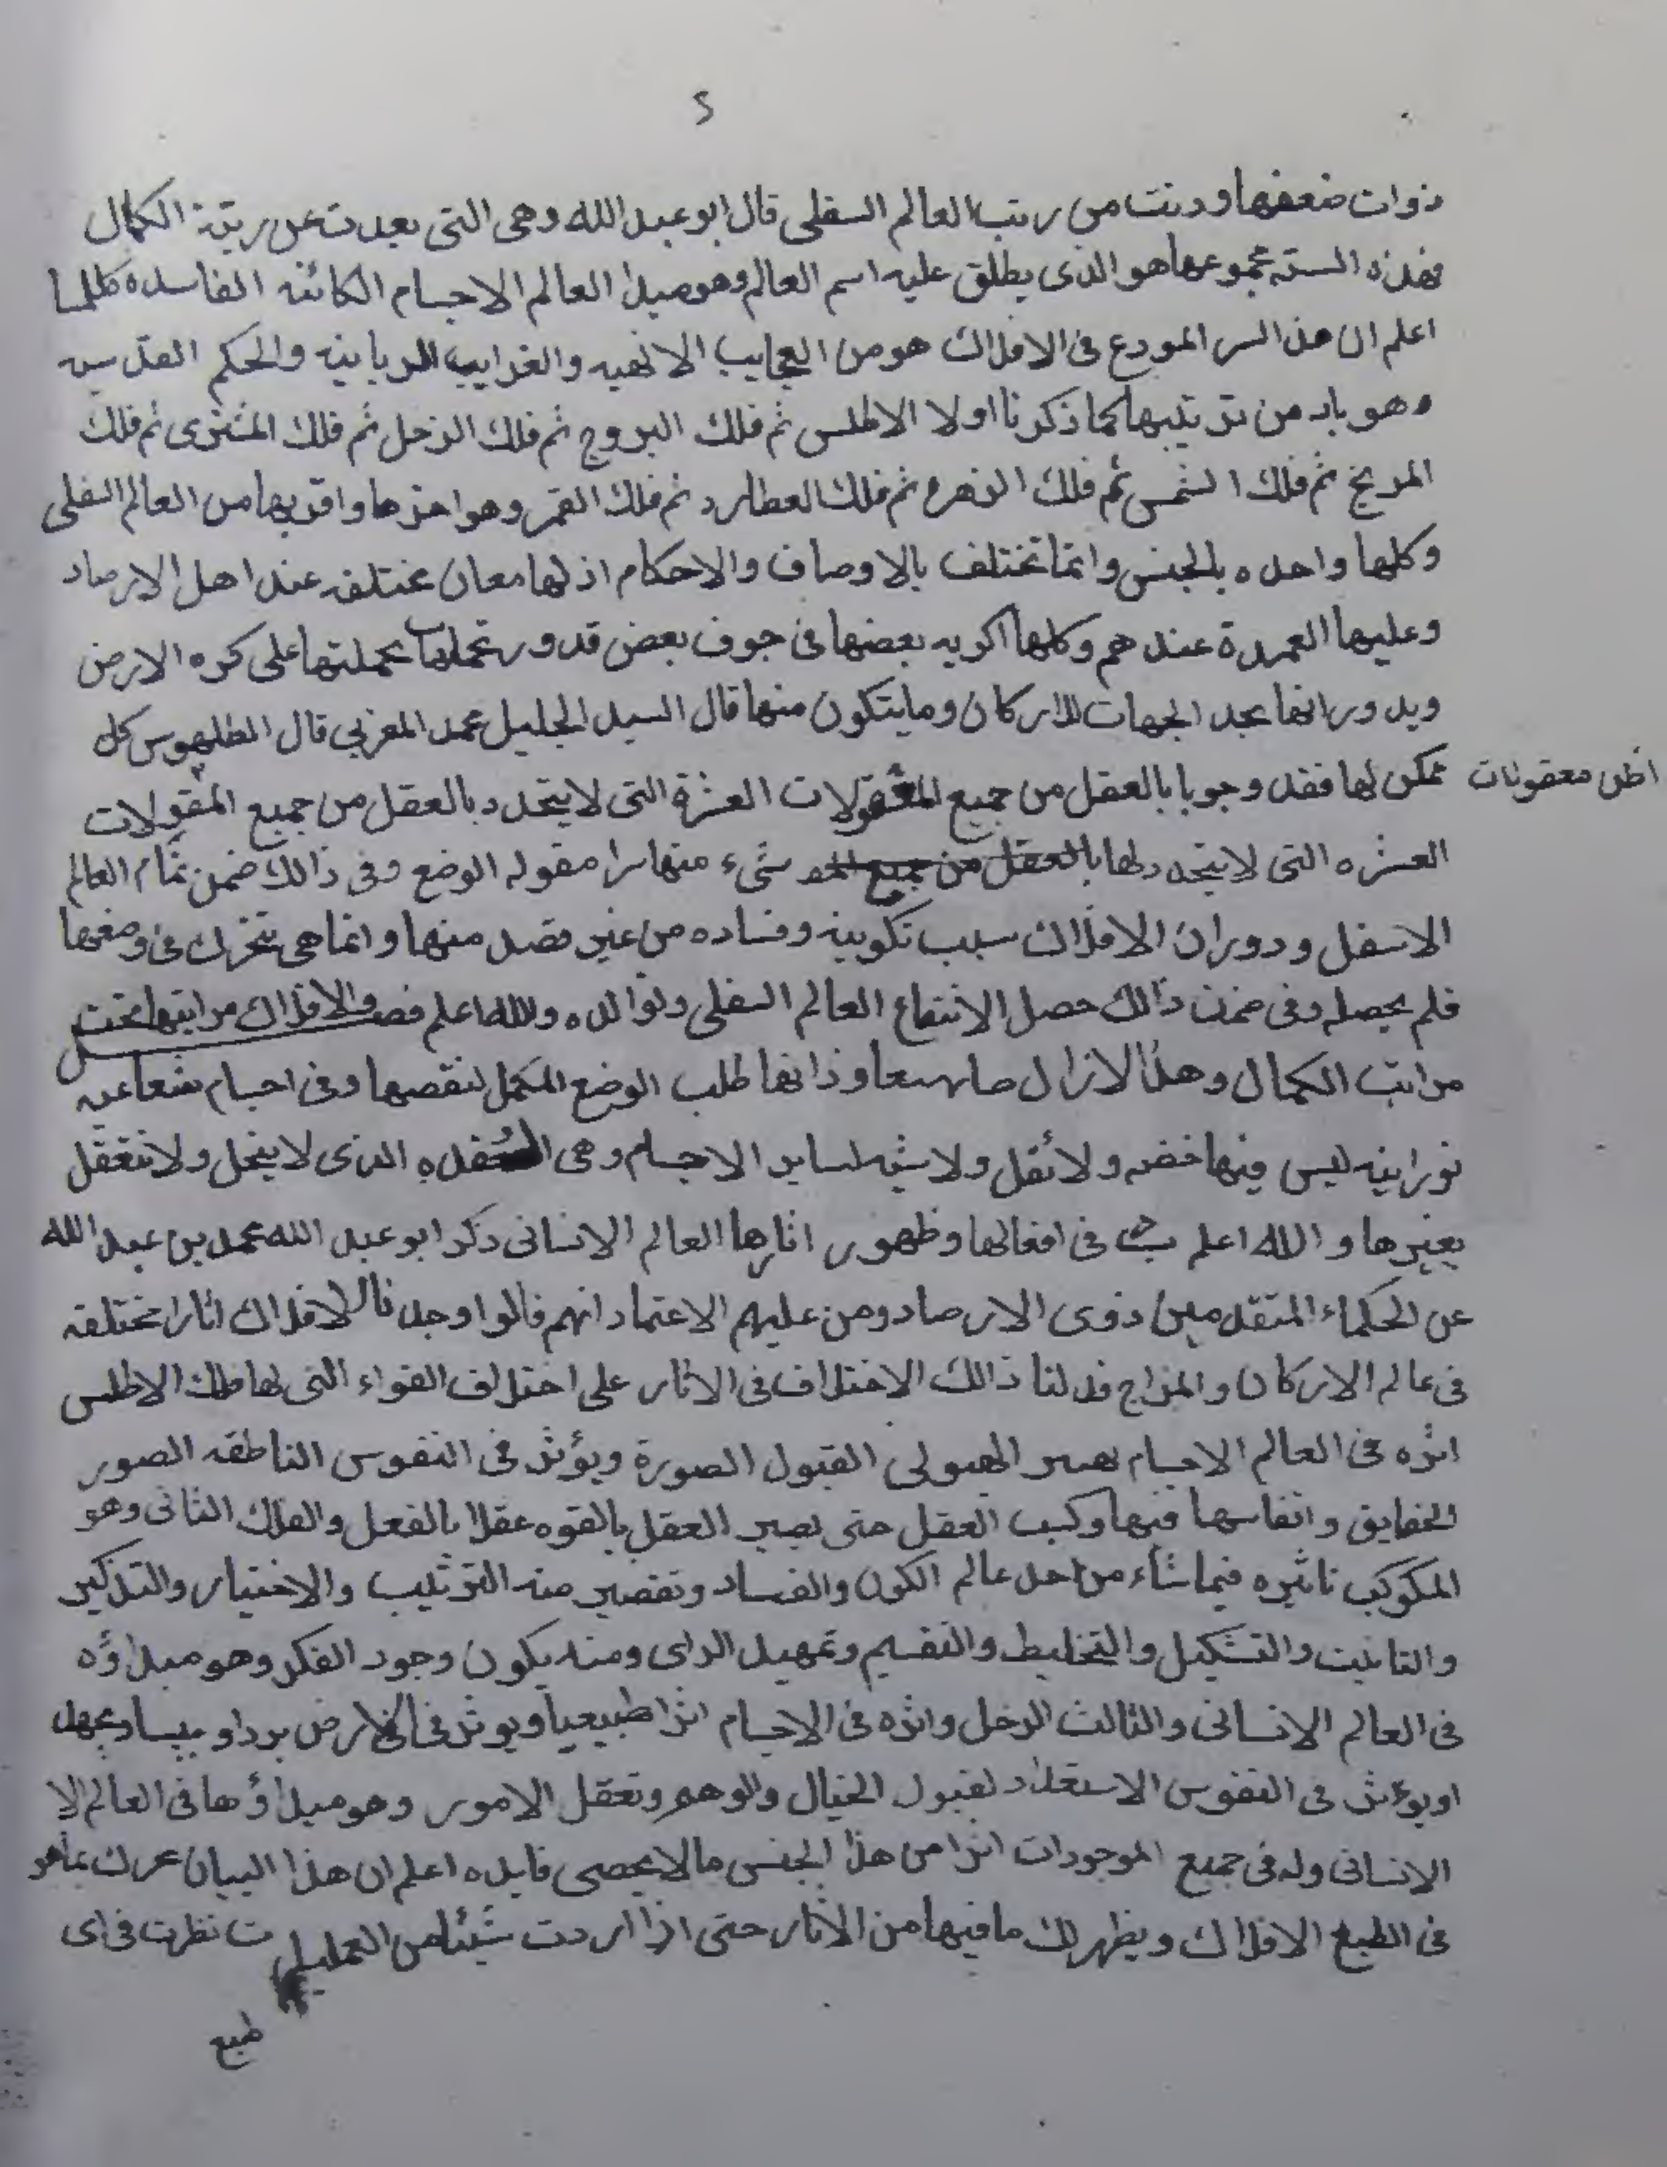 ٢
ذوات ضعفها ودنت من رتب العالم السفلى قال ابو عبد الله وهى التى بعدت عن رتبة الكمال
فهذه السته مجموعها هو الذى يطلق عليه اسم العالم وهو مبدا العالم الاجسام الكائنه الفاسده كلها
اعلم ان هذا السر المودع فى الافلاك هو من العجايب الالهيه والغرايب الربانيه والحكم القدسيه
وهو باد من ترتيبها كما ذكرنا اولا الاطلس ثم فلك البروج ثم فلك الزحل ثم فلك المشترى ثم فلك
المريخ ثم فلك الشمس ثم فلك الزهره ثم فلك العطارد ثم فلك القمر وهو اخرها واقربها من العالم السفلى
وكلها واحده بالجنس وانما تختلف بالاوصاف والاحكام اذ لها معان مختلفه عند اهل الارصاد
وعليها العمدة عندهم وكلها اكريه بعضها فى جوف بعض قد ورتحلها بحملتها على كره الارض
ويدورانها عجد الجهات للاركان وما يتكون منها قال السيد الجليل محمد المغربي قال الطلهوس كل
ممكن لها فقد وجوبا بالعقل من جميع المقولات العشرة التى لا يتجدد بالعقل من جميع المقولات
اظن معقولات
العشره التى لا يتجد دلها بالعقل من جميع المقو شىء منها سرا مقوله الوضع وفى ذالك ضمن تمام العالم
الاسفل ودوران الافلاك سبب تكوينه وفساده من غير قصد منها وانما هى تتحرك فى وضعها
فلم يحصله وفى ضمن ذالك حصل الانتفاع العالم السفلى ولوالده والله اعلم فصل والافلاك مراتبها تحت
مراتب الكمال وهذا لازال وذاتها طلب الوضع المكمل لنقصها وفى اجسام شعاعيه
نورانيه ليس فيها خفه ولا ثقل ولا شبه لساير الاجسام وهى الذى لا ينحل ولا تتعقل
بغيرها والله اعلم فى افعالها وظهور اثارها العالم الانسانى ذكر ابو عبد الله محمد بن عبد الله
عن الحكماء المتقدمين ذوى الارصاد ومن عليهم الاعتماد انهم قالوا وجدنا للافلاك اثارا مختلفه
فى عالم الاركان والمزاج فدلنا ذالك الاختلاف فى الاثار على اختلاف القواء التى لها فلك الاطلس
اثره فى العالم الاجسام الهيولى القبول الصورة ويؤثر فى النفوس الناطقه الصور
الحقايق وانفاسها فيها وكسب العقل حتى يصير العقل بالقوه عقلا بالفعل والفلك الثانى وهو
المكوكب تاثيره فيما شاء من احد عالم الكون والفساد وتقصير منه الترتيب والاختيار والتذكير
والتانيث والتشكيل والتخليط والتقسيم وتمهيد الراى ومنه يكون وجود الفكر وهو مبداؤه
فى العالم الانسانى والثالث الزحل واثره فى الاجسام اثرا طبيعيا ويوثر فى الارض بردا و
اويوءثر فى النفوس الاستعداد لقبول الخيال والوهم وتعقل الامور وهو مبداؤها فى العالم الا
الانسانى وله فى جميع الموجودات اثرا من هذا الجنس ما لا يحصى فايده اعلم ان هذا البيان عرك بما هو
فى الطبع الافلاك ويظهر لك ما فيها من الاثار حتى اذا اردت شيئا من العمليات نظرت فى اى
طبع